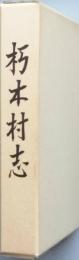 朽木村志